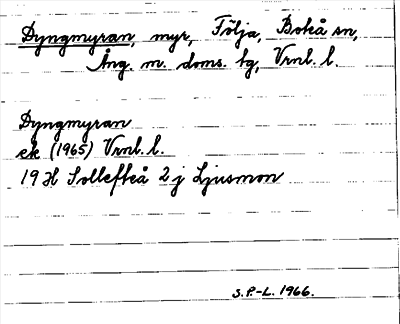 Dyngmyran, myr, Följa, Boteå sn,
Ång. m. doms. bg, Vrnl. l.
Dyngmyran
ek (1965) Vrnl. l.
19 H Sollefteå 2 j Ljusmon
S.P.-L. 1966.